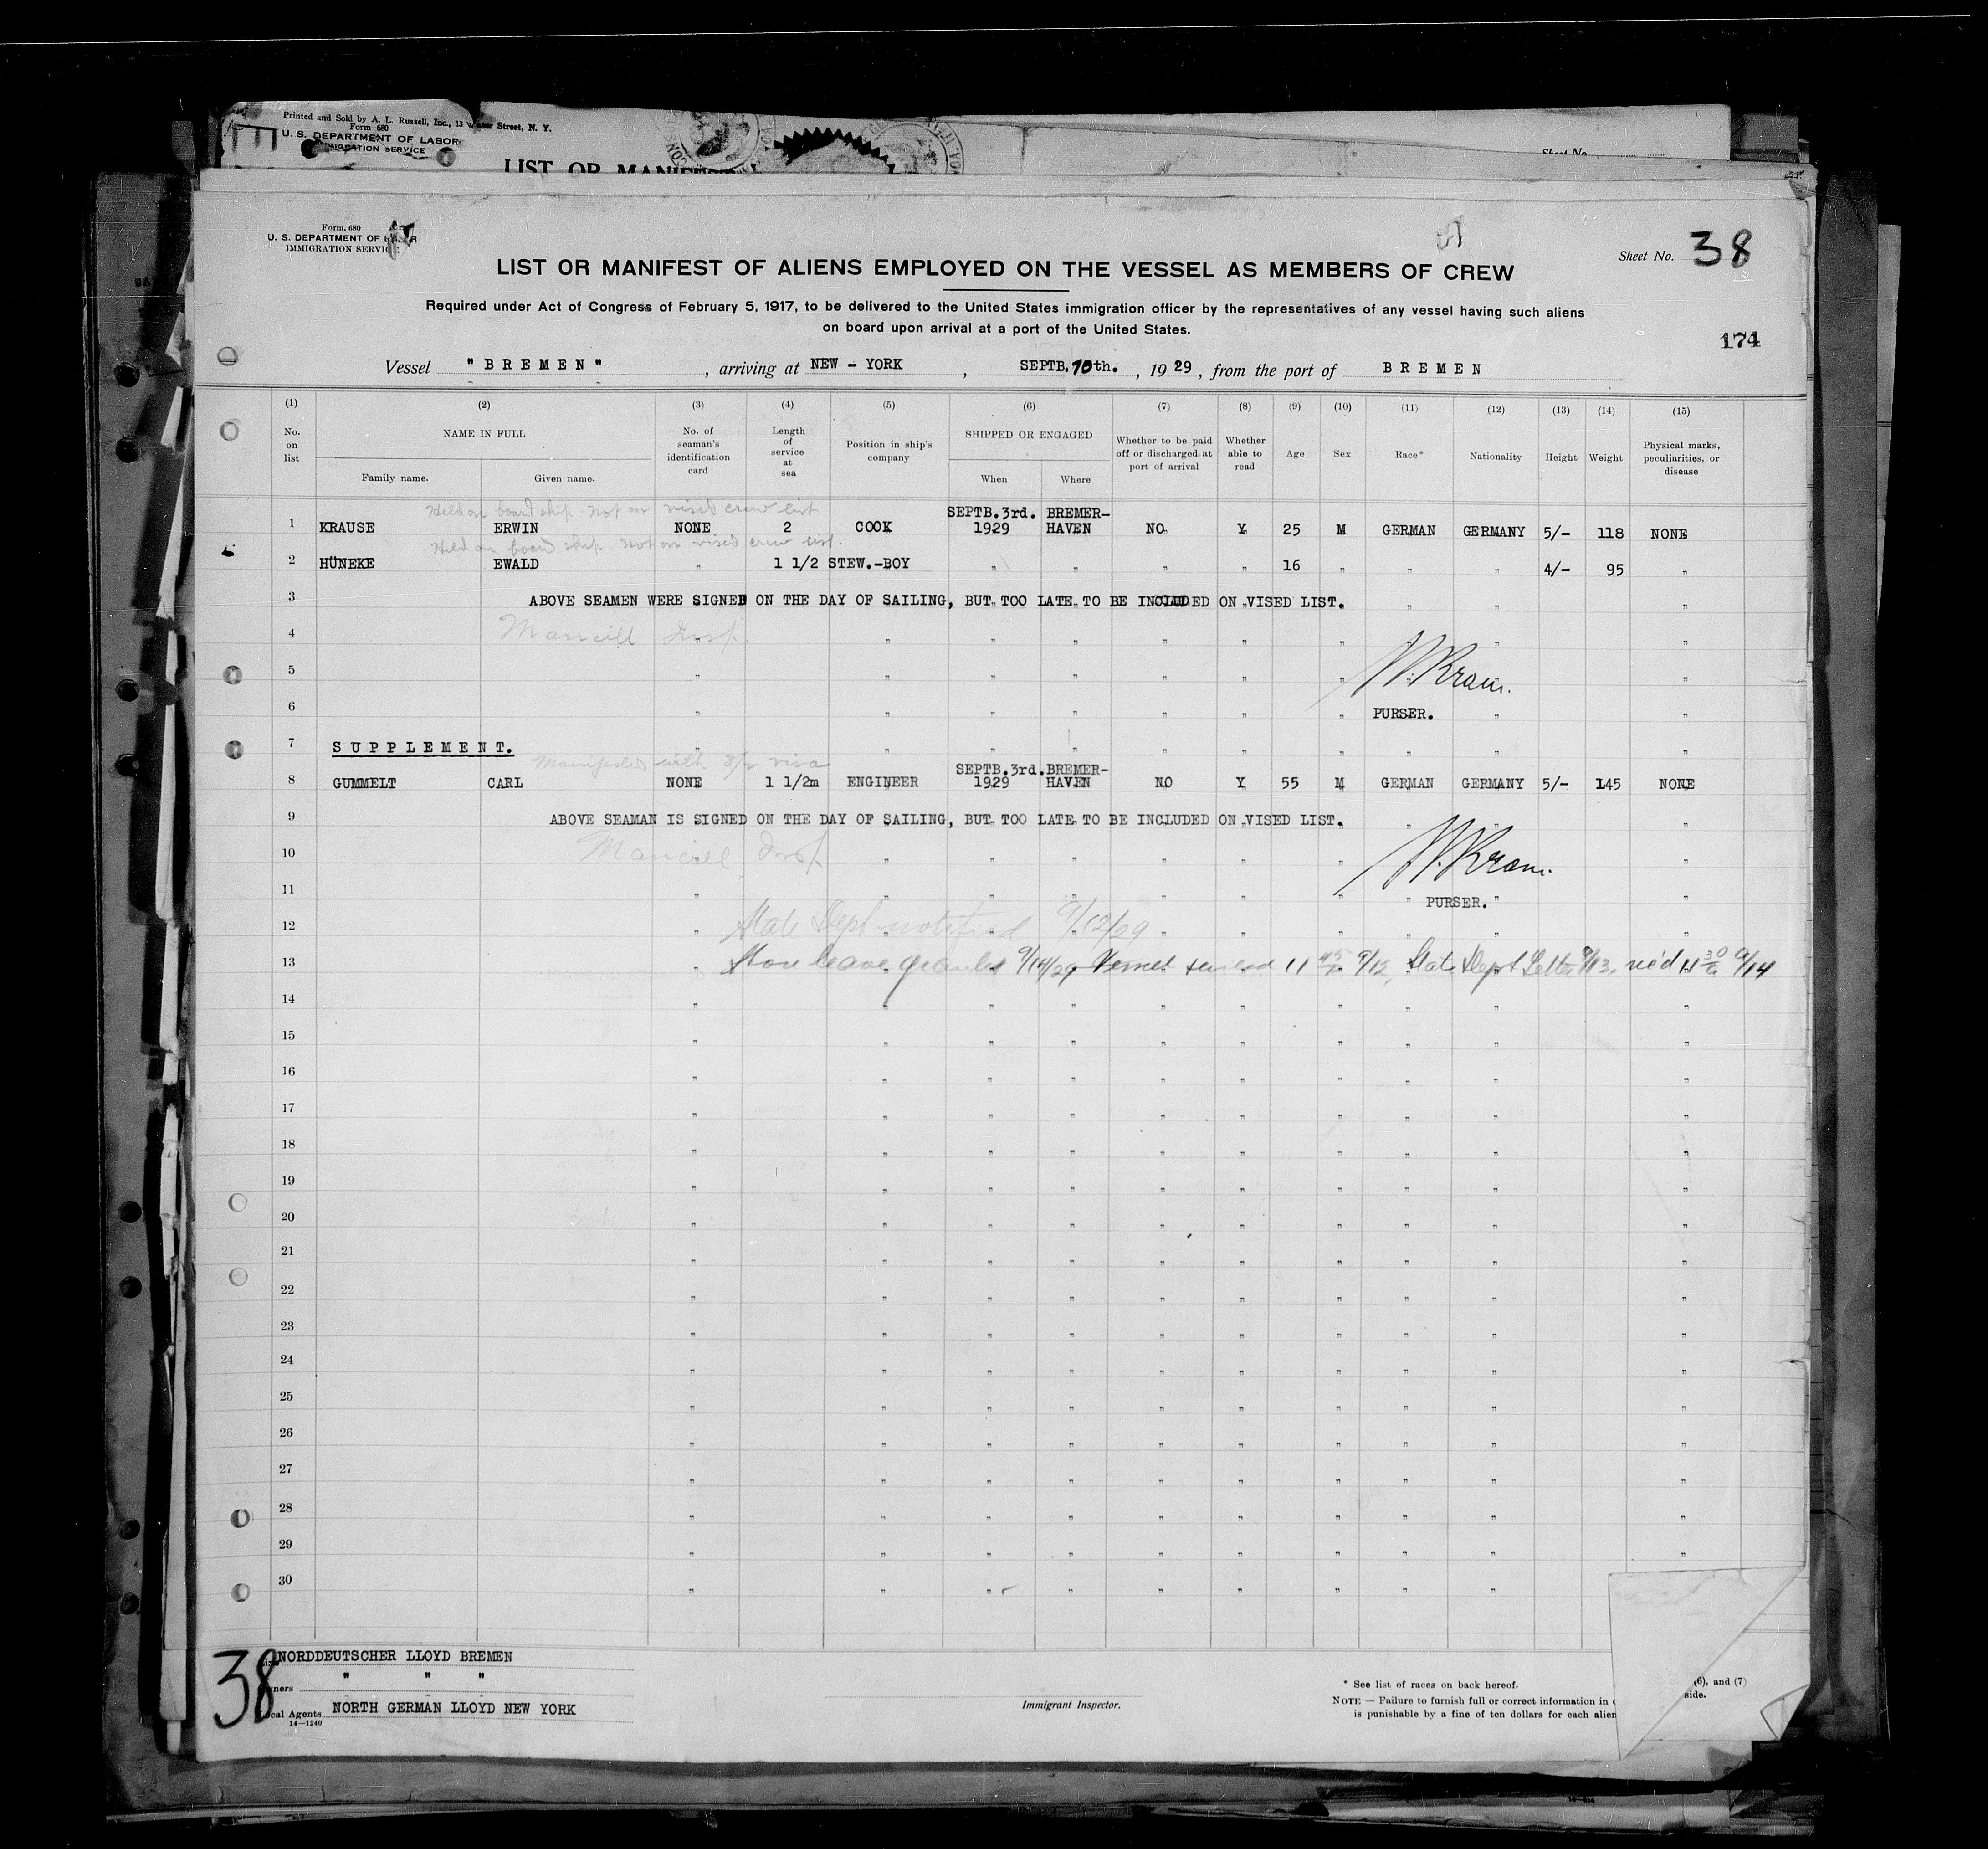 Printed and Sold by A. L. Russell, Inc., 13 Water Street, N. Y.
Form 680
U. S. DEPARTMENT OF LABOR
IMMIGRATION SERVICE
LIST OR
Sheet No.
Form. 680
U. S. DEPARTMENT OF LABOR
IMMIGRATION SERVICE
Sheet No. 38
LIST OR MANIFEST OF ALIENS EMPLOYED ON THE VESSEL AS MEMBERS OF CREW
Required under Act of Congress of February 5, 1917, to be delivered to the United States immigration officer by the representatives of any vessel having such aliens
on board upon arrival at a port of the United States.
174
Vessel "BREMEN", arriving at NEW - YORK, SEPTB. 10th., 1929, from the port of BREMEN
(1) (2) (3) (4) (5) (6) (7) (8) (9) (10) (11) (12) (13) (14) (15)
No. on list NAME IN FULL Family name. Given name. No. of seaman's identification card Length of service at sea Position in ship's company SHIPPED OR ENGAGED When Where Whether to be paid off or discharged at port of arrival Whether able to read Age Sex Race* Nationality Height Weight Physical marks, peculiarities, or disease
Held on board ship. Not on vised crew list
1 KRAUSE ERWIN NONE 2 COOK SEPTB.3rd. 1929 BREMER-HAVEN NO Y 25 M GERMAN GERMANY 5/- 118 NONE
Held on board ship. Not on vised crew list.
2 HÜNEKE EWALD " 1 1/2 STEW.-BOY " " " " 16 " " " 4/- 95 "
3 ABOVE SEAMEN WERE SIGNED ON THE DAY OF SAILING, BUT TOO LATE TO BE INCLUDED ON VISED LIST.
4 Insp.
5
6 PURSER.
7 SUPPLEMENT.
Manifested with visa
8 GUMMELT CARL NONE 1 1/2m ENGINEER SEPTB.3rd. 1929 BREMER-HAVEN NO Y 55 M GERMAN GERMANY 5/- 145 NONE
9 ABOVE SEAMAN IS SIGNED ON THE DAY OF SAILING, BUT TOO LATE TO BE INCLUDED ON VISED LIST.
10 Insp.
11 PURSER.
12 State Dept notified 9/12/29
13 Shore leave granted 9/14/29 Vessel sailed 11 45 9/12, State Dept Letter 9/13, rec'd 11 30 9/14
14
15
16
17
18
19
20
21
22
23
24
25
26
27
28
29
30
38
NORDDEUTSCHER LLOYD BREMEN
" " "
Owners
Local Agents NORTH GERMAN LLOYD NEW YORK
14-1240
Immigrant Inspector.
* See list of races on back hereof.
NOTE — Failure to furnish full or correct information in
is punishable by a fine of ten dollars for each alien
(6), and (7)
side.